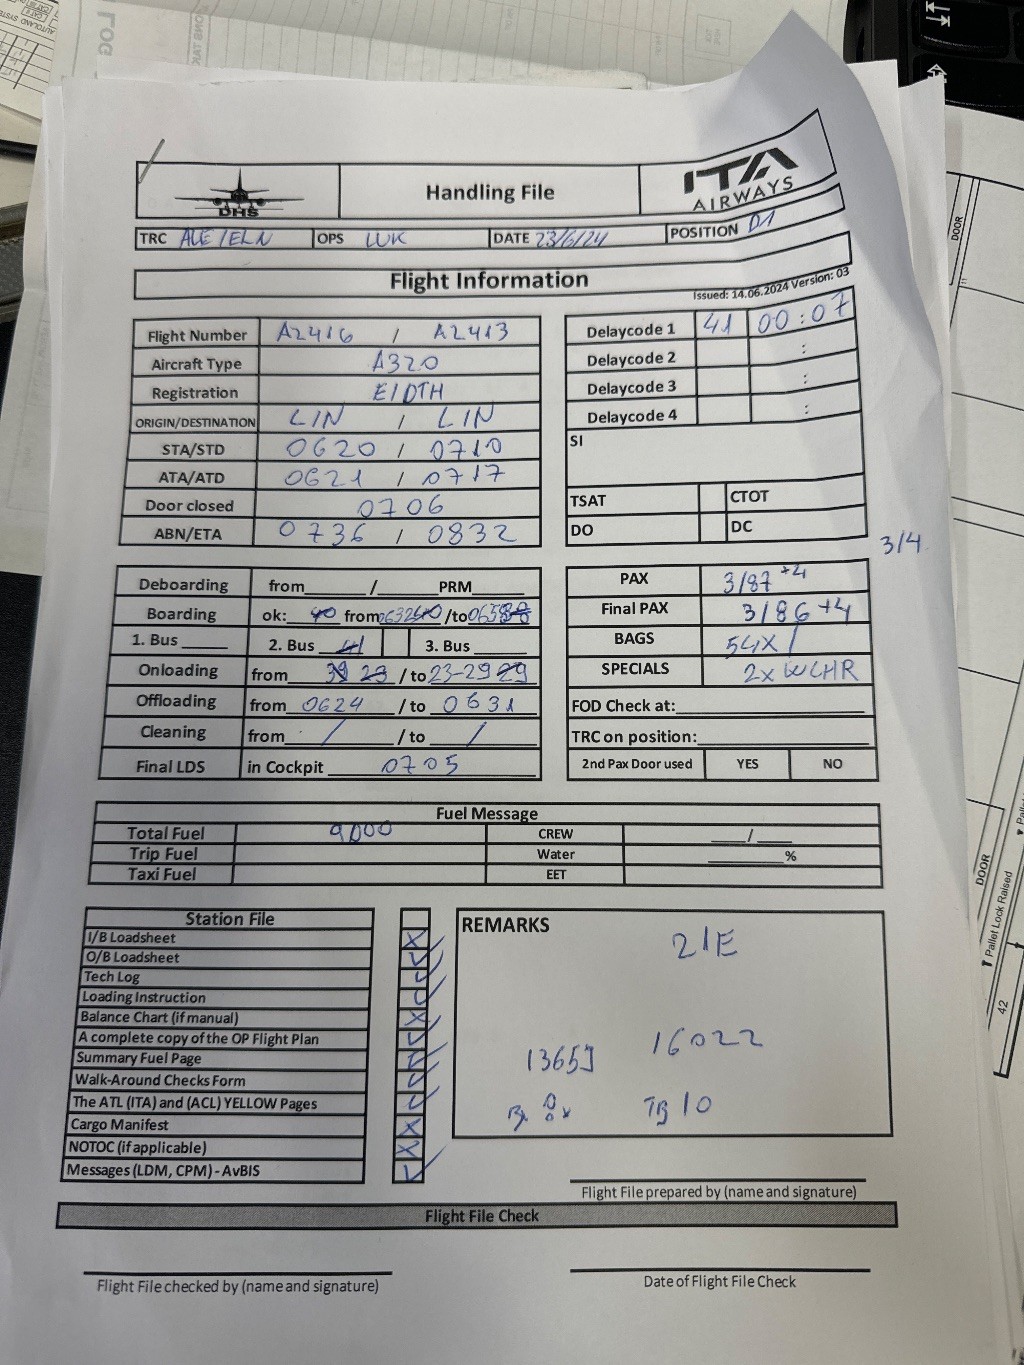 DHS
Handling File
ITA
AIRWAYS
TRC ALE/ELN OPS LUK DATE 23/6/24 POSITION D1
Flight Information
Issued: 14.06.2024 Version: 03
Flight Number AZ416 / AZ413
Aircraft Type A320
Registration EIDTH
ORIGIN/DESTINATION LIN / LIN
STA/STD 0620 / 0710
ATA/ATD 0621 / 0717
Door closed 0706
ABN/ETA 0736 / 0832
Delaycode 1 41 00:07
Delaycode 2 :
Delaycode 3 :
Delaycode 4 :
SI
TSAT CTOT
DO DC
3/4
Deboarding from / PRM
Boarding ok: from /to
1. Bus 2. Bus 3. Bus
Onloading from /to 23-29
Offloading from 0624 /to 0631
Cleaning from / /to /
Final LDS in Cockpit 0705
PAX 3/87 +4
Final PAX 3/86 +4
BAGS 54X /
SPECIALS 2x WCHR
FOD Check at:
TRC on position:
2nd Pax Door used YES NO
Fuel Message
Total Fuel 9000 CREW /
Trip Fuel Water %
Taxi Fuel EET
Station File
I/B Loadsheet
O/B Loadsheet
Tech Log
Loading Instruction
Balance Chart (if manual)
A complete copy of the OP Flight Plan
Summary Fuel Page
Walk-Around Checks Form
The ATL (ITA) and (ACL) YELLOW Pages
Cargo Manifest
NOTOC (if applicable)
Messages (LDM, CPM) - AvBIS
REMARKS
21E
16022
1365
TB 10
Flight File prepared by (name and signature)
Flight File Check
Flight File checked by (name and signature)
Date of Flight File Check
LOG
DOOR
DOOR
Pallet Lock Raised
42